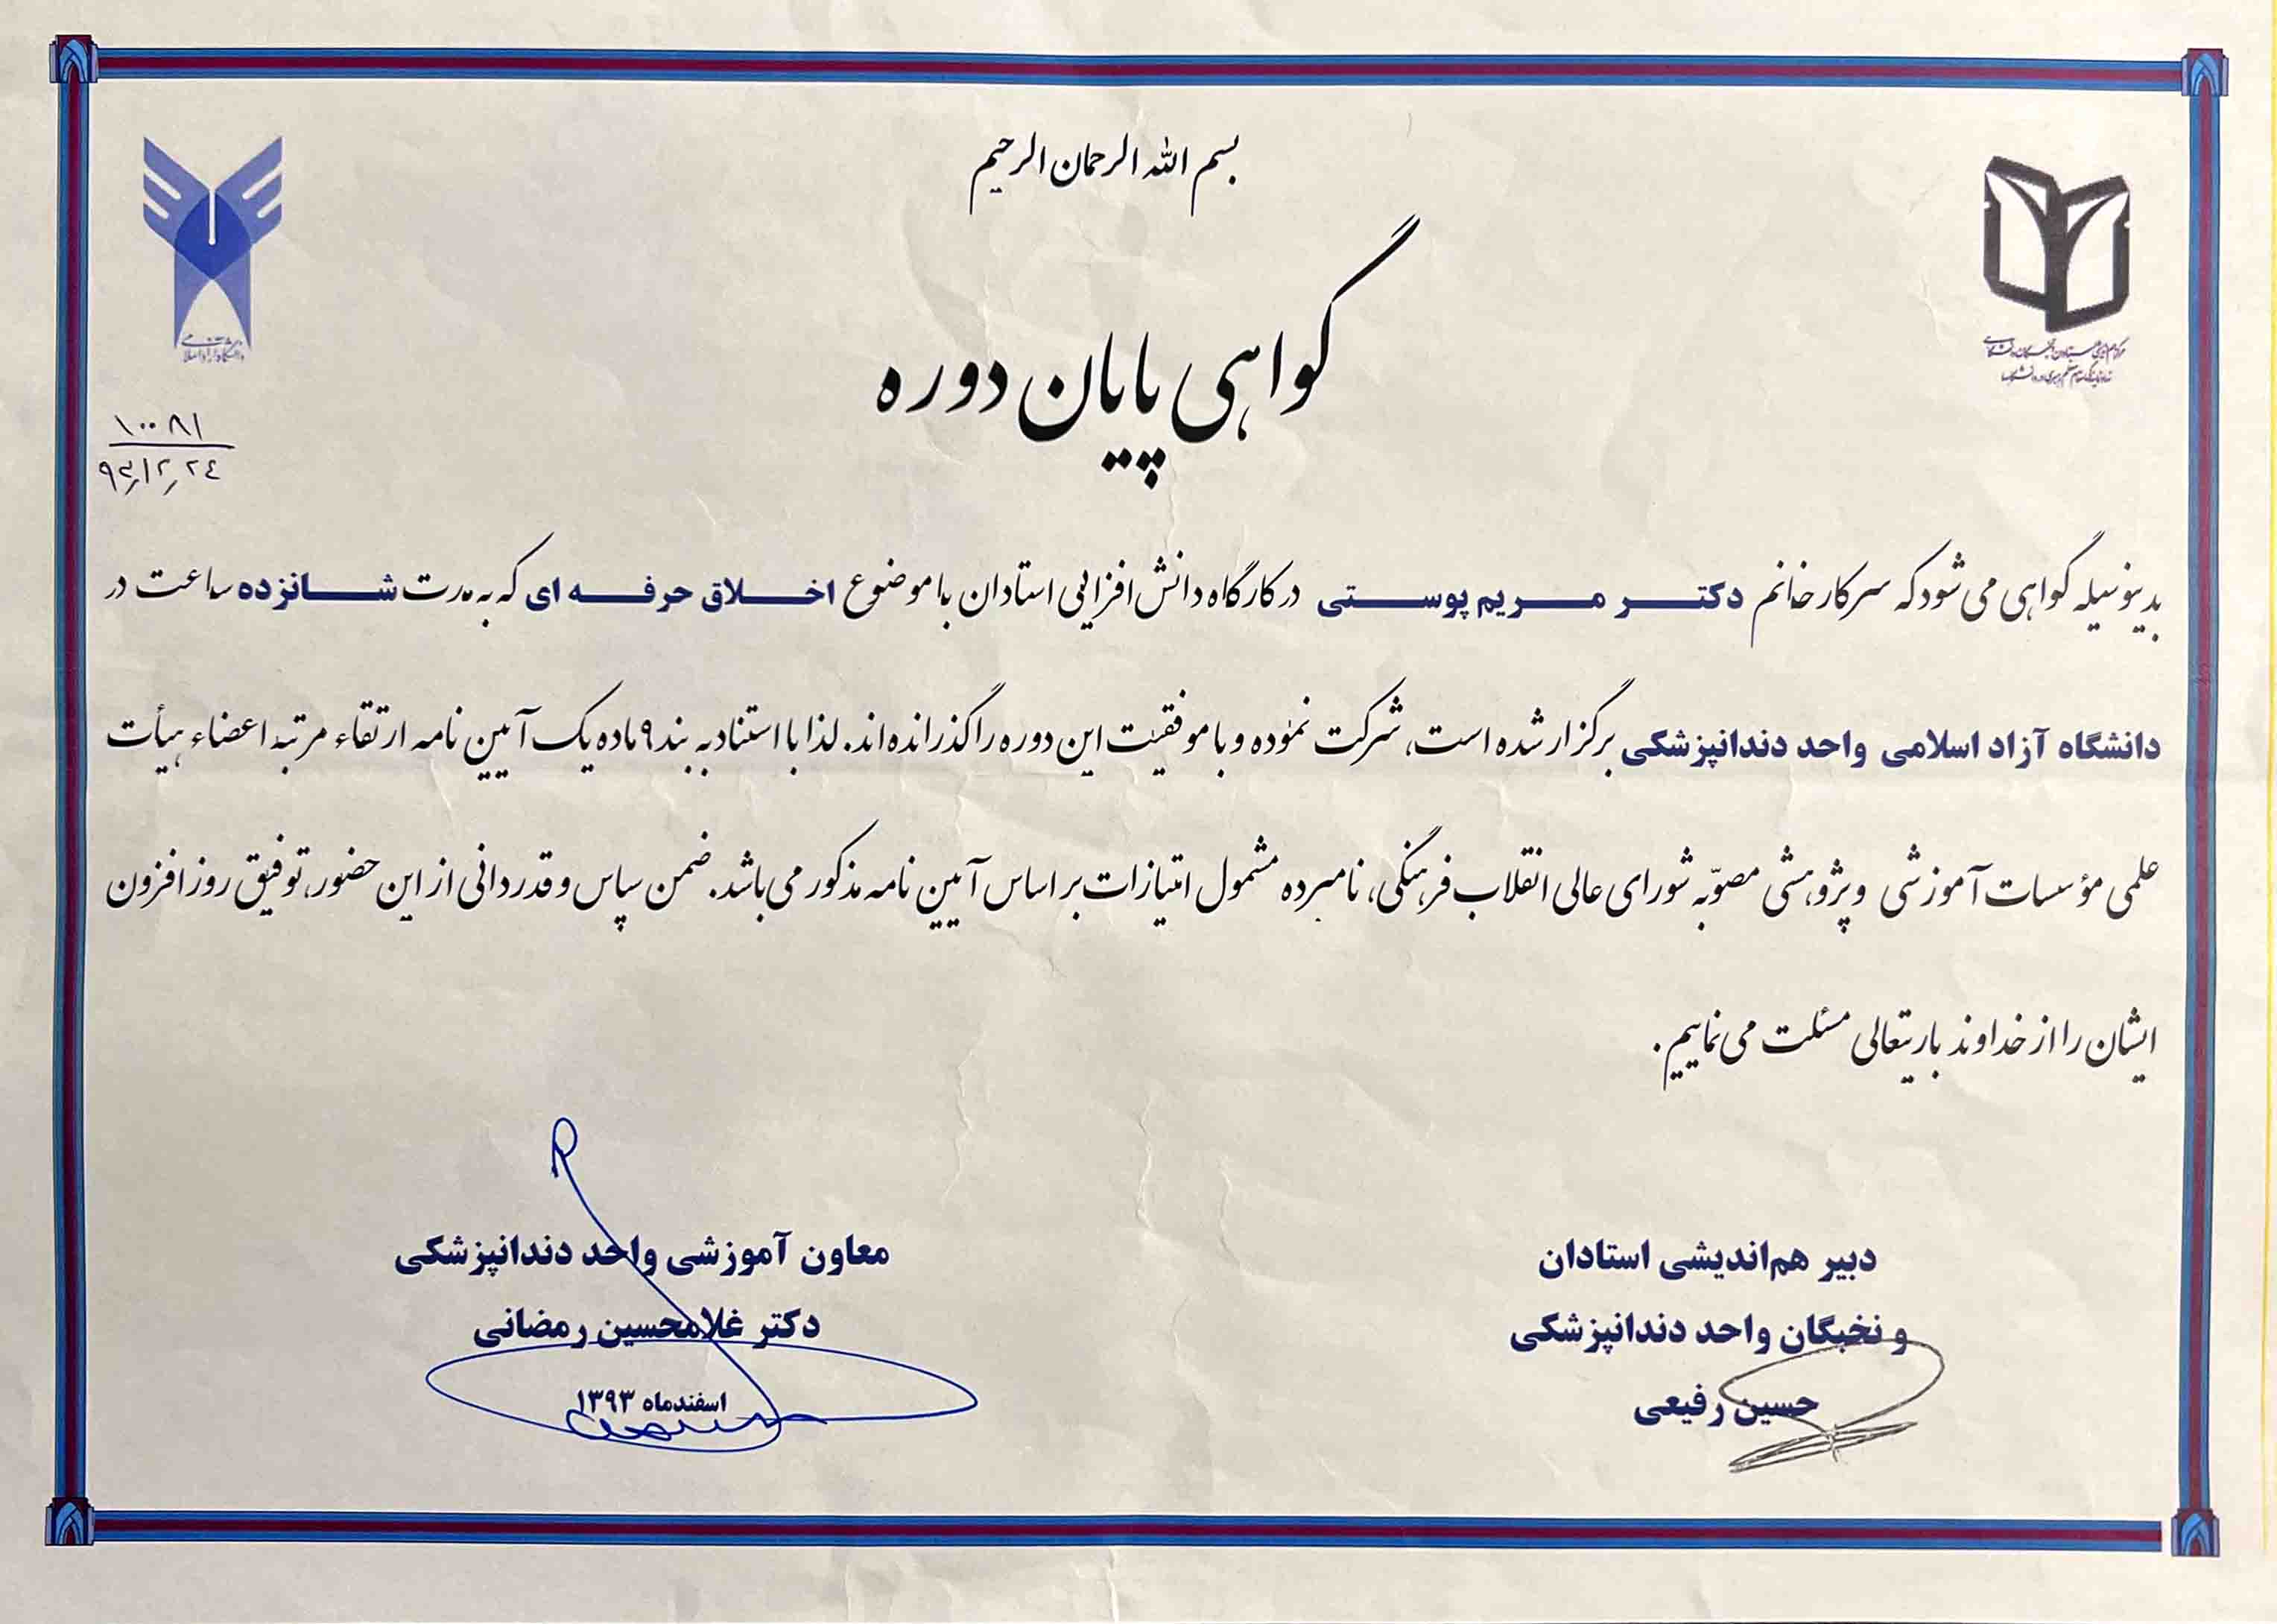 بسم الله الرحمان الرحیم
گواهی پایان دوره
دانشگاه آزاد اسلامی
۱۰۰۸۱
۹۳/۱۲/۲۴
بدینوسیله گواهی می شود که سرکار خانم دکتر مریم پوستی در کارگاه دانش افزایی استادان با موضوع اخلاق حرفه ای که به مدت شانزده ساعت در
دانشگاه آزاد اسلامی واحد دندانپزشکی برگزار شده است، شرکت نموده و با موفقیت این دوره را گذرانده اند. لذا با استناد به بند ۹ ماده یک آیین نامه ارتقاء مرتبه اعضاء هیأت
علمی مؤسسات آموزشی و پژوهشی مصوّبه شورای عالی انقلاب فرهنگی، نامبرده مشمول امتیازات بر اساس آیین نامه مذکور می باشد. ضمن سپاس و قدردانی از این حضور، توفیق روز افزون
ایشان را از خداوند باریتعالی مسئلت می نماییم.
دبیر هم‌اندیشی استادان
و نخبگان واحد دندانپزشکی
حسین رفیعی
معاون آموزشی واحد دندانپزشکی
دکتر غلامحسین رمضانی
اسفندماه ۱۳۹۳